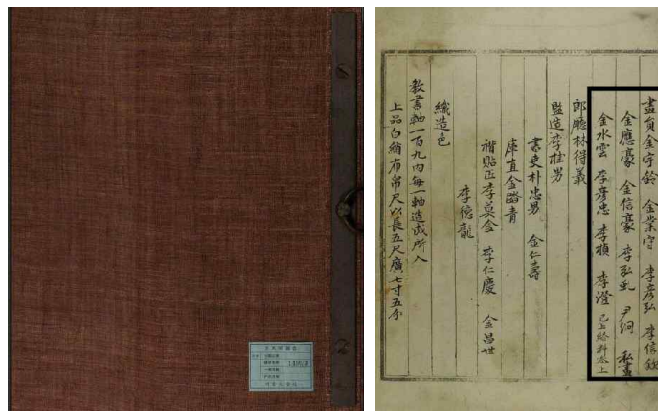 畫員金守鈴 金業守 李彦弘 李信欽
金應豪 金信豪 李弘虬 尹絅 私畫
金水雲 李彦忠 李楨 李澄 已上給料本上
郎廳林得義
監造李桂男
書吏朴忠男 金仁壽
庫直金 青
褙貼匠李莫金 李仁慶 金昌世
李億龍
織造色
教書軸一百九內每一軸造成所入
上品白綃布帛尺以長五尺廣七寸五分